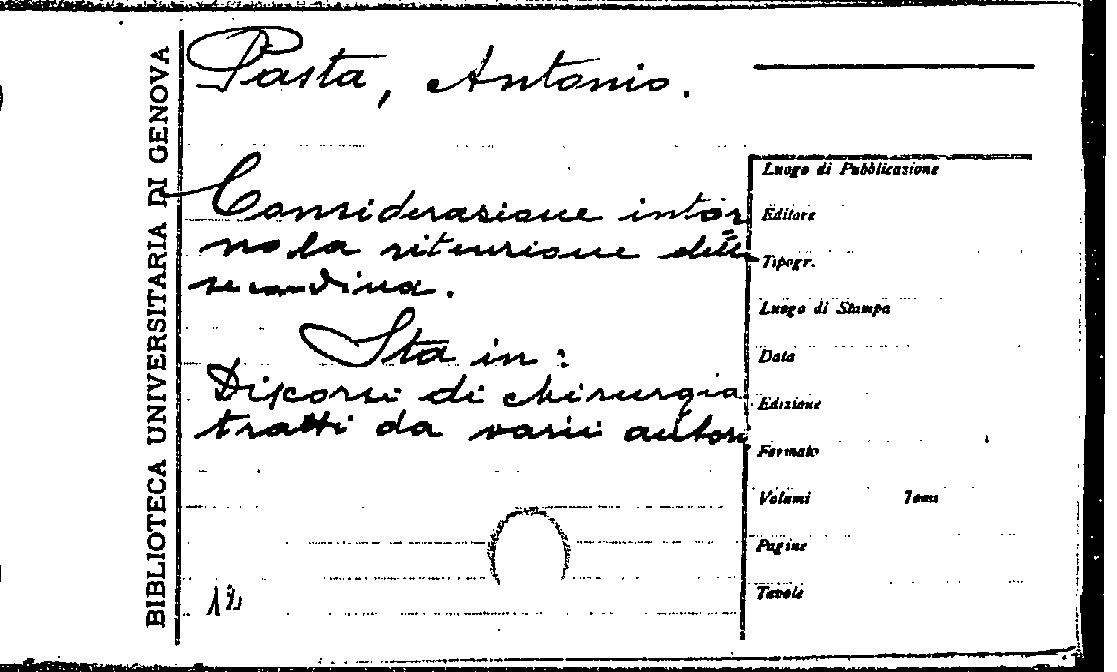 BIBLIOTECA UNIVERSITARIA DI GENOVA
Pasta, Antonio.
Considerazione intor
no la ritenzione della
secondina.
Sta in:
Discorsi di chirurgia
tratti da varii autori
12
Luogo di Pubblicazione
Editore
Tipogr.
Luogo di Stampa
Data
Edizione
Formato
Volumi Tomi
Pagine
Tavole